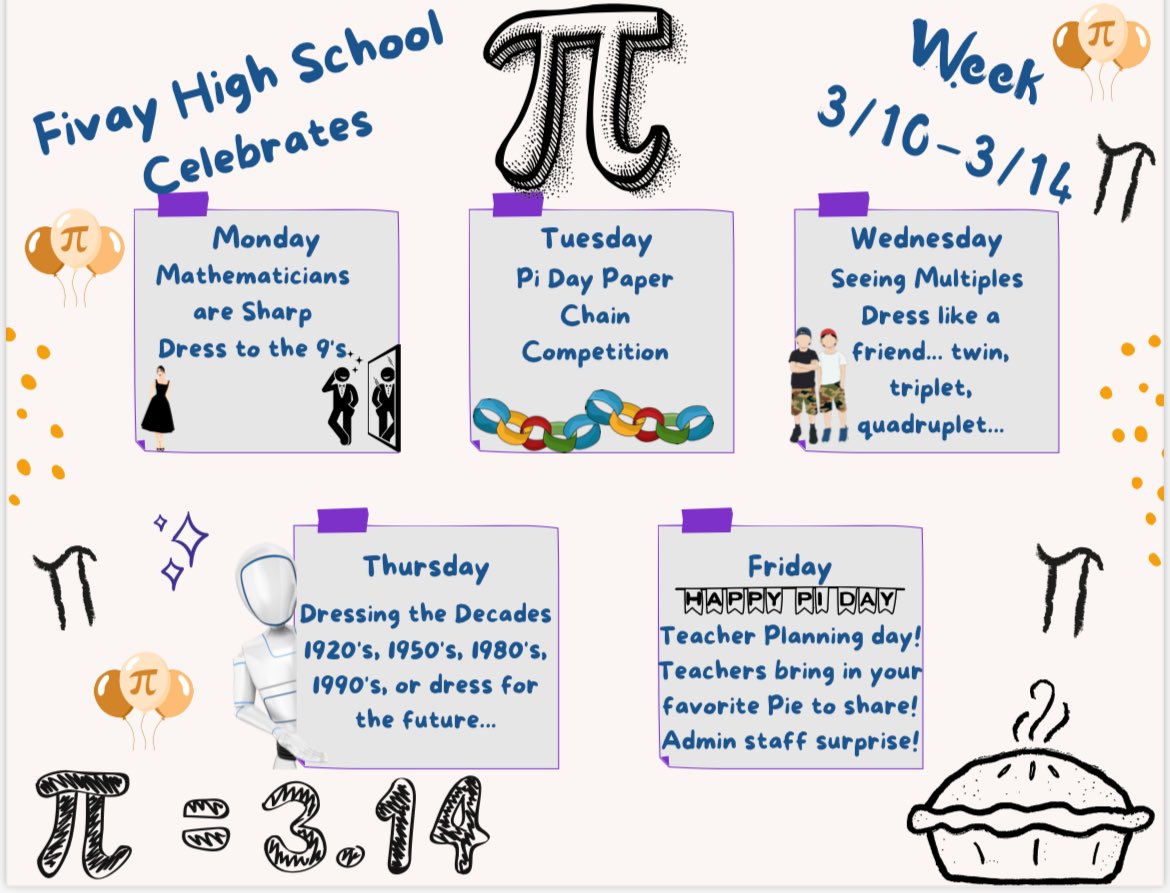 Fivay High School
Celebrates
π
Week
3/10-3/14
π
π
π
Monday
Mathematicians
are Sharp
Dress to the 9's
Tuesday
Pi Day Paper
Chain
Competition
Wednesday
Seeing Multiples
Dress like a
friend... twin,
triplet,
quadruplet...
π
π
Thursday
Dressing the Decades
1920's, 1950's, 1980's,
1990's, or dress for
the future...
Friday
HAPPY PI DAY
Teacher Planning day!
Teachers bring in your
favorite Pie to share!
Admin staff surprise!
π
π = 3.14